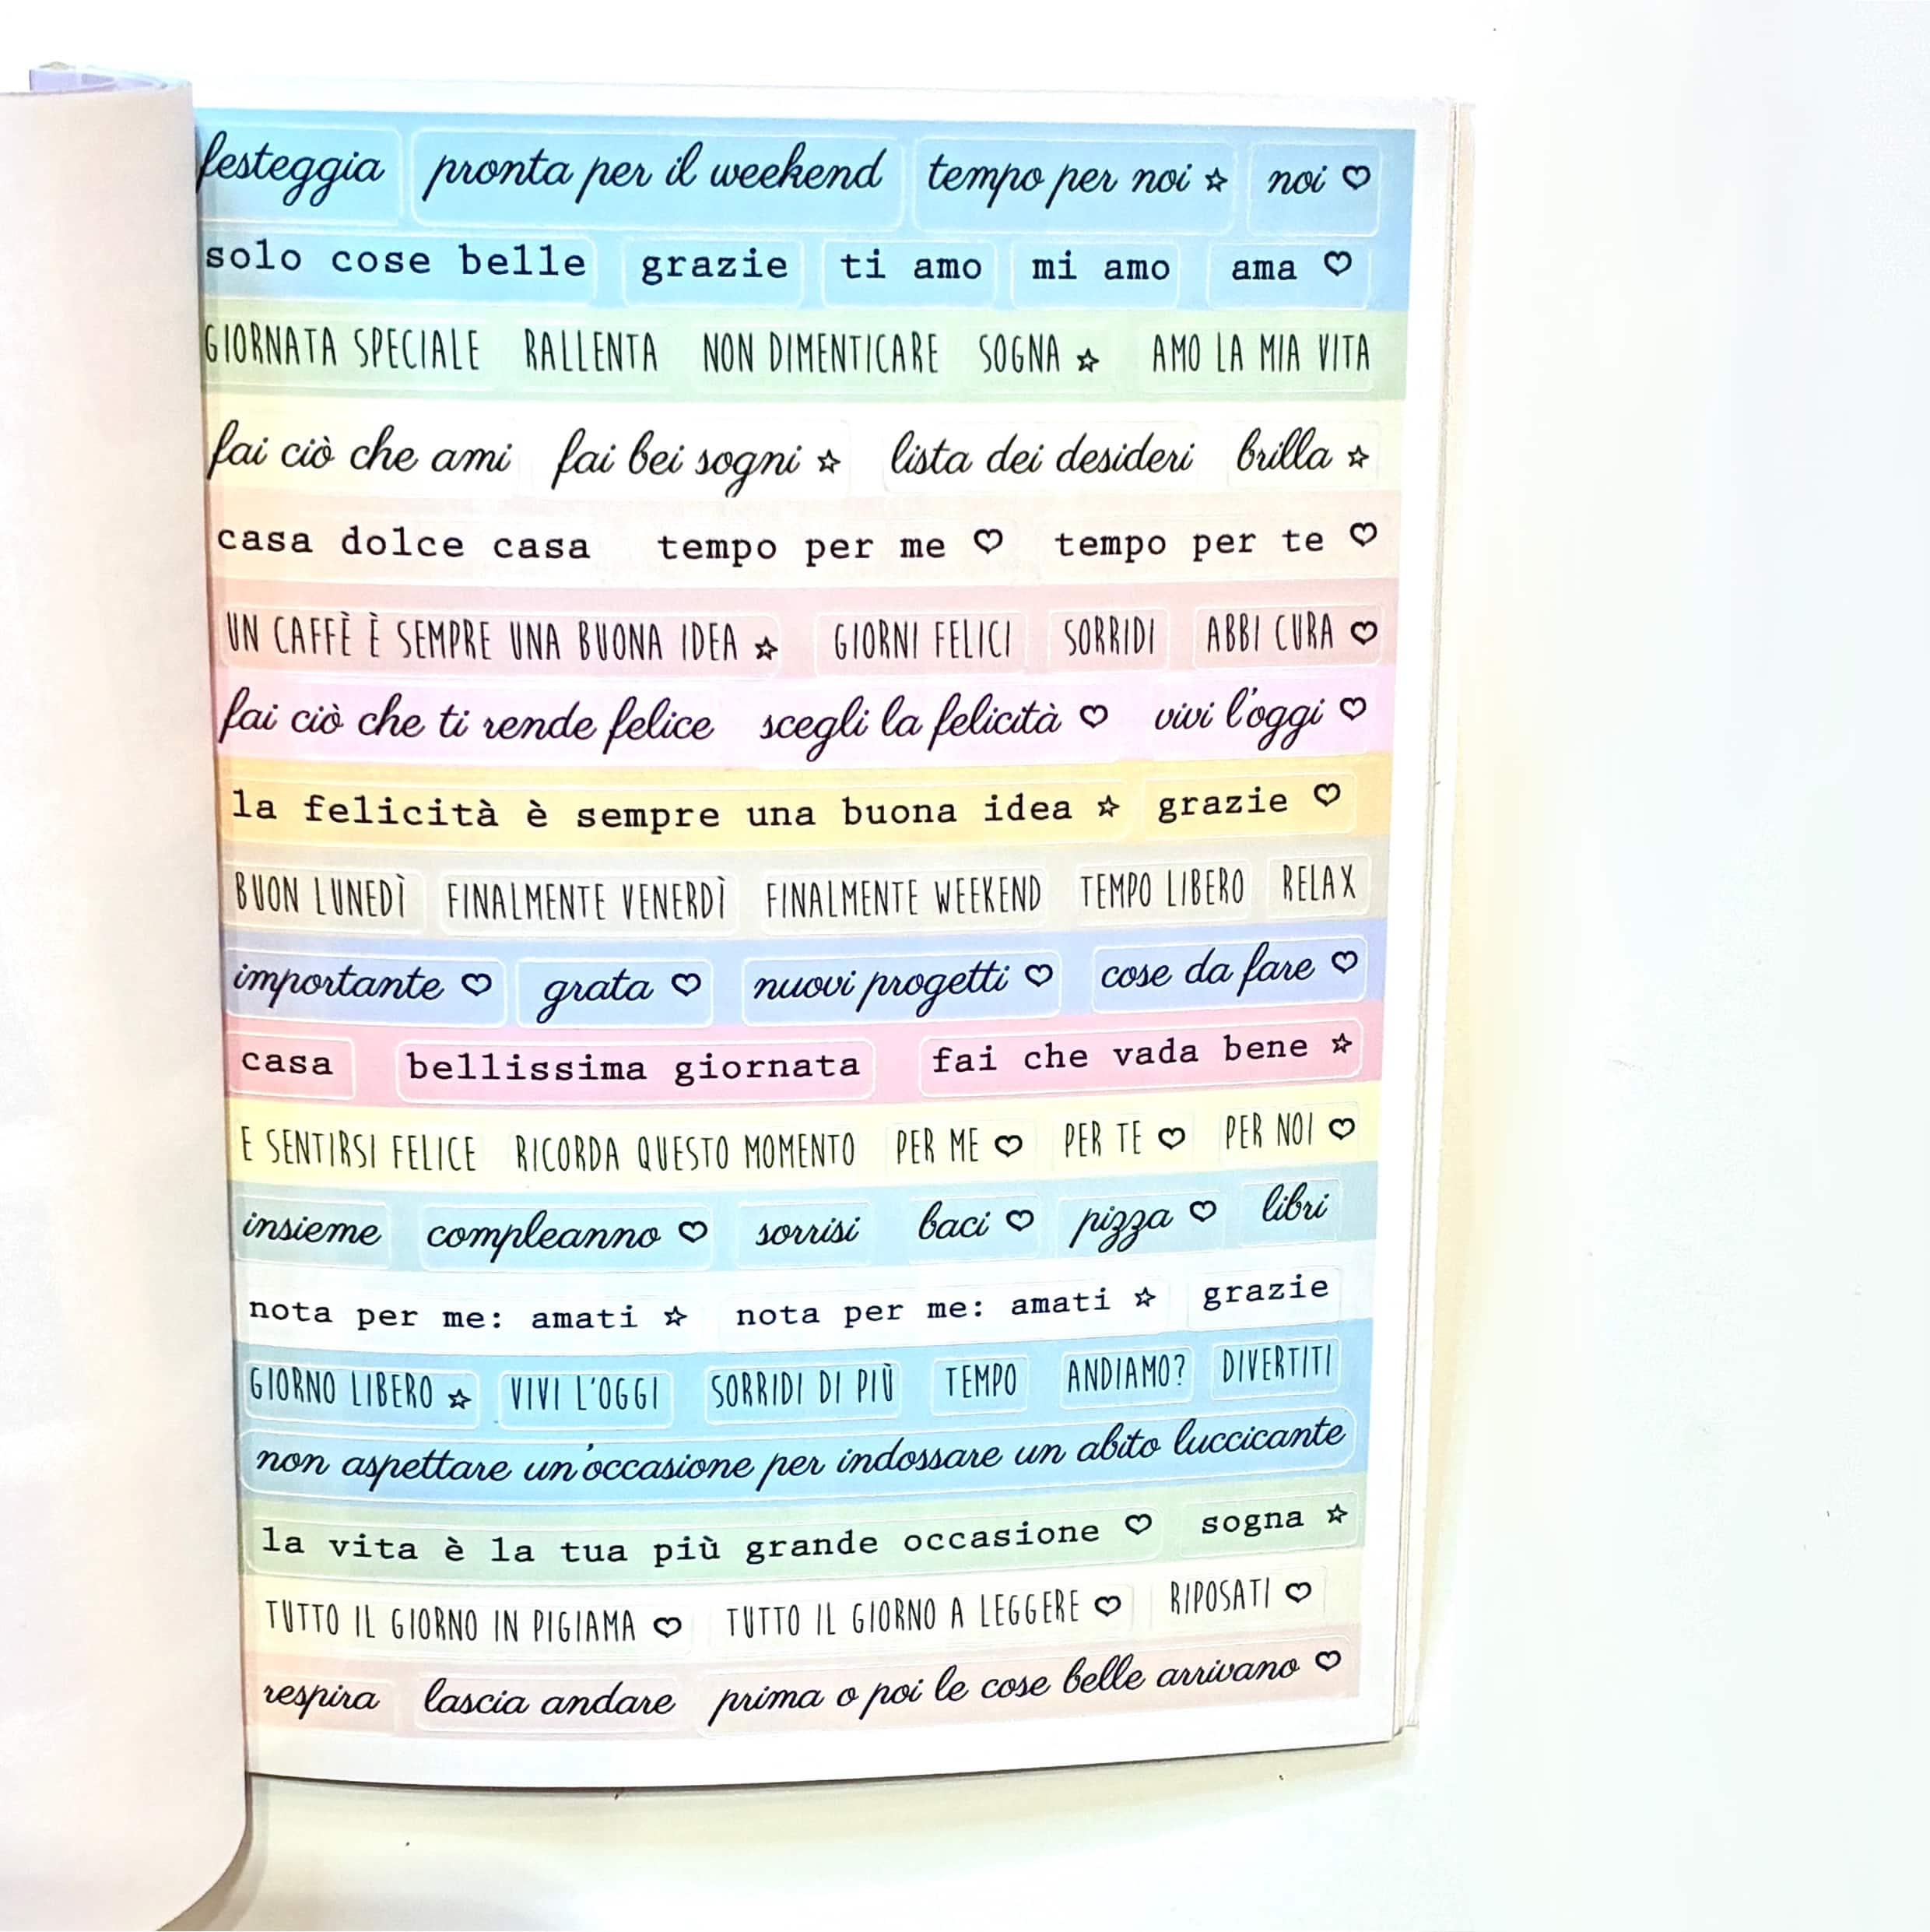 festeggia pronta per il weekend tempo per noi ☆ noi ♡
solo cose belle grazie ti amo mi amo ama ♡
GIORNATA SPECIALE RALLENTA NON DIMENTICARE SOGNA ☆ AMO LA MIA VITA
fai ciò che ami fai bei sogni ☆ lista dei desideri brilla ☆
casa dolce casa tempo per me ♡ tempo per te ♡
UN CAFFÈ È SEMPRE UNA BUONA IDEA ☆ GIORNI FELICI SORRIDI ABBI CURA ♡
fai ciò che ti rende felice scegli la felicità ♡ vivi l'oggi ♡
la felicità è sempre una buona idea ☆ grazie ♡
BUON LUNEDÌ FINALMENTE VENERDÌ FINALMENTE WEEKEND TEMPO LIBERO RELAX
importante ♡ grata ♡ nuovi progetti ♡ cose da fare ♡
casa bellissima giornata fai che vada bene ☆
E SENTIRSI FELICE RICORDA QUESTO MOMENTO PER ME ♡ PER TE ♡ PER NOI ♡
insieme compleanno ♡ sorrisi baci ♡ pizza ♡ libri
nota per me: amati ☆ nota per me: amati ☆ grazie
GIORNO LIBERO ☆ VIVI L'OGGI SORRIDI DI PIÙ TEMPO ANDIAMO? DIVERTITI
non aspettare un'occasione per indossare un abito luccicante
la vita è la tua più grande occasione ♡ sogna ☆
TUTTO IL GIORNO IN PIGIAMA ♡ TUTTO IL GIORNO A LEGGERE ♡ RIPOSATI ♡
respira lascia andare prima o poi le cose belle arrivano ♡